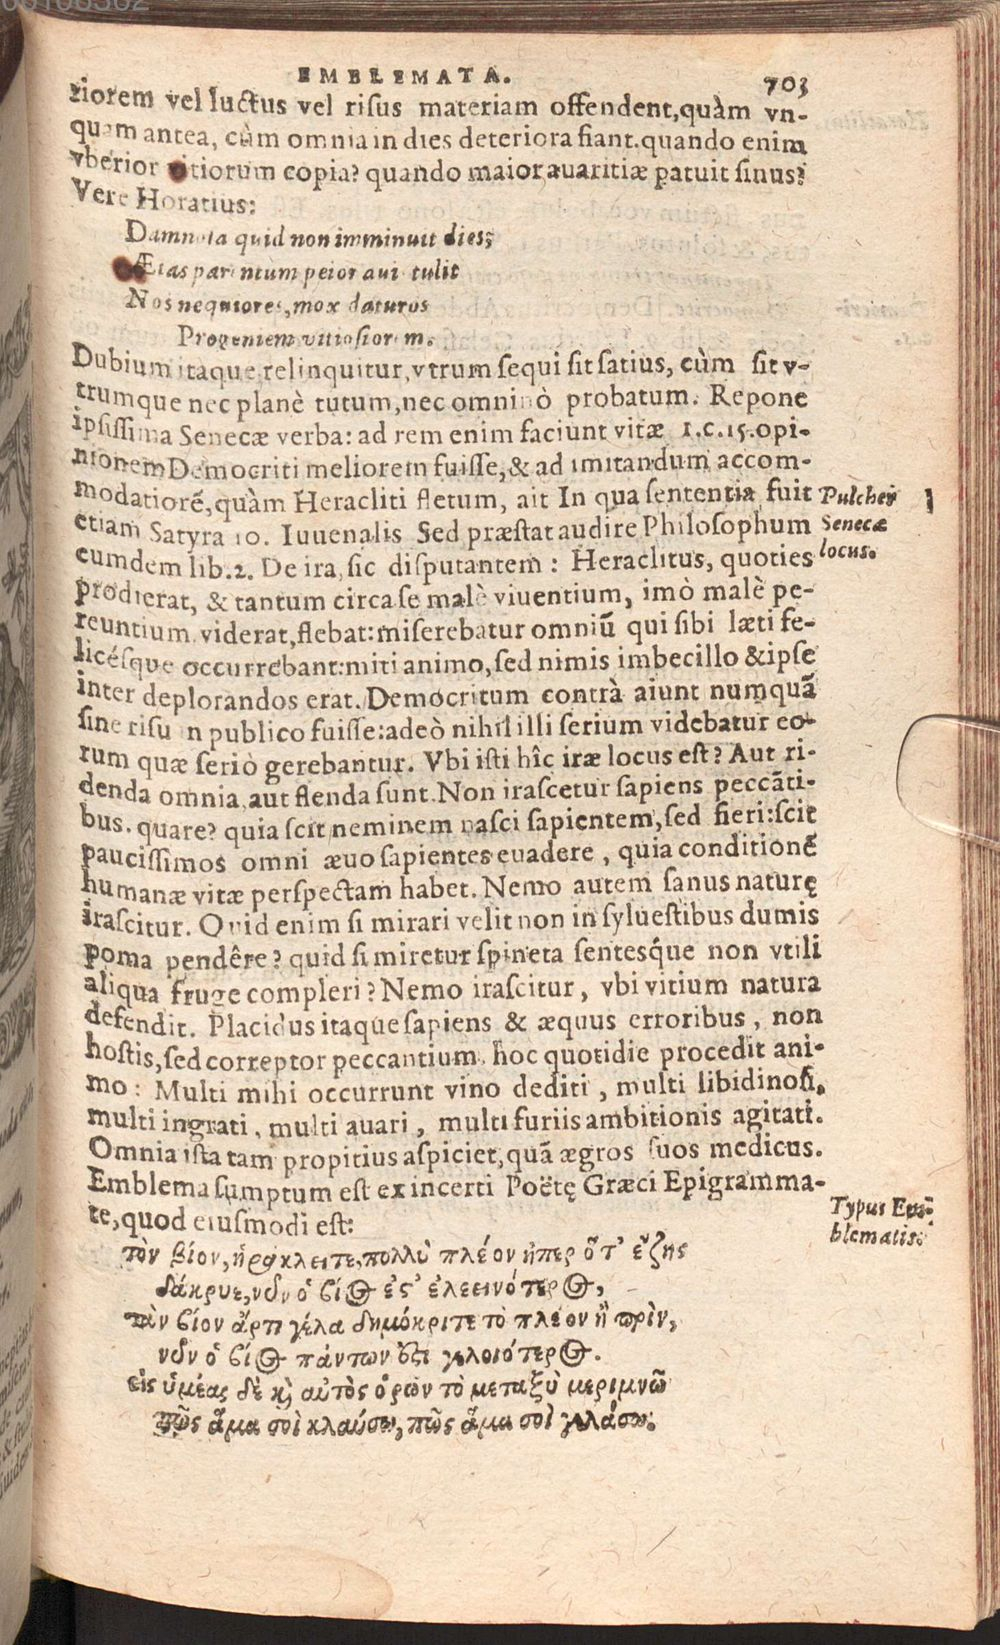 EMBLEMATA. 703
riorem vel luctus vel risus materiam offendent,quàm vn-
quam antea, cùm omnia in dies deteriora fiant.quando enim
vberior vitiorum copia? quando maior auaritiæ patuit sinus?
Vere Horatius:
Damnosa quid non imminuit dies?
Ætas parentum peior auis tulit
Nos nequiores, mox daturos
Progeniem vitiosiorem.
Dubium itaque relinquitur, vtrum sequi sit satius, cùm sit v-
trumque nec planè tutum, nec omninò probatum. Repone
ipsissima Senecæ verba: ad rem enim faciunt vitæ 1.c.15.opi-
nionem Democriti meliorem fuisse, & ad imitandum accom-
modatiorē, quàm Heracliti fletum, ait In qua sententia fuit
etiam Satyra 10. Iuuenalis Sed præstat audire Philosophum
eumdem lib.2. De ira, sic disputantem : Heraclitus, quoties
prodierat, & tantum circa se malè viuentium, imò malè pe-
reuntium viderat, flebat: miserebatur omniū qui sibi læti fe-
licésque occurrebant: miti animo, sed nimis imbecillo & ipse
inter deplorandos erat. Democritum contrà aiunt numquā
sine risu in publico fuisse: adeò nihil illi serium videbatur eo-
rum quæ seriò gerebantur. Vbi isti hîc iræ locus est? Aut ri-
denda omnia, aut flenda sunt. Non irascetur sapiens peccāti-
bus. quare? quia scit neminem nasci sapientem, sed fieri: scit
paucissimos omni æuo sapientes euadere, quia conditionē
humanæ vitæ perspectam habet. Nemo autem sanus naturę
irascitur. Quid enim si mirari velit non in syluestibus dumis
poma pendêre? quid si miretur spineta sentesq́ue non vtili
aliqua fruge compleri? Nemo irascitur, vbi vitium natura
defendit. Placidus itaque sapiens & æquus erroribus, non
hostis, sed correptor peccantium. hoc quotidie procedit ani-
mo: Multi mihi occurrunt vino dediti, multi libidinosi,
multi ingrati, multi auari, multi furiis ambitionis agitati.
Omnia ista tam propitius aspiciet, quā ægros suos medicus.
Emblema sumptum est ex incerti Poëtę Græci Epigramma-
te, quod eiusmodi est:
τὸν βίον, ἡράκλειτε, πολλὺ πλέον ἤπερ ὅτ᾽ ἔζης
δάκρυε, νῦν ὁ βίος ἐς᾽ ἐλεεινότερος,
τὸν βίον ἄρτι γέλα δημόκριτε τὸ πλέον ἢ πρὶν,
νῦν ὁ βίος πάντων ὅτι γελοιότερος.
εἰς ὑμέας δὲ καὶ αὐτὸς ὁρῶν τὸ μεταξὺ μεριμνῶ
πῶς ἅμα σοὶ κλαύσω, πῶς ἅμα σοὶ γελάσω.
Pulcher
Senecæ
locus.
Typus Em-
blematis.